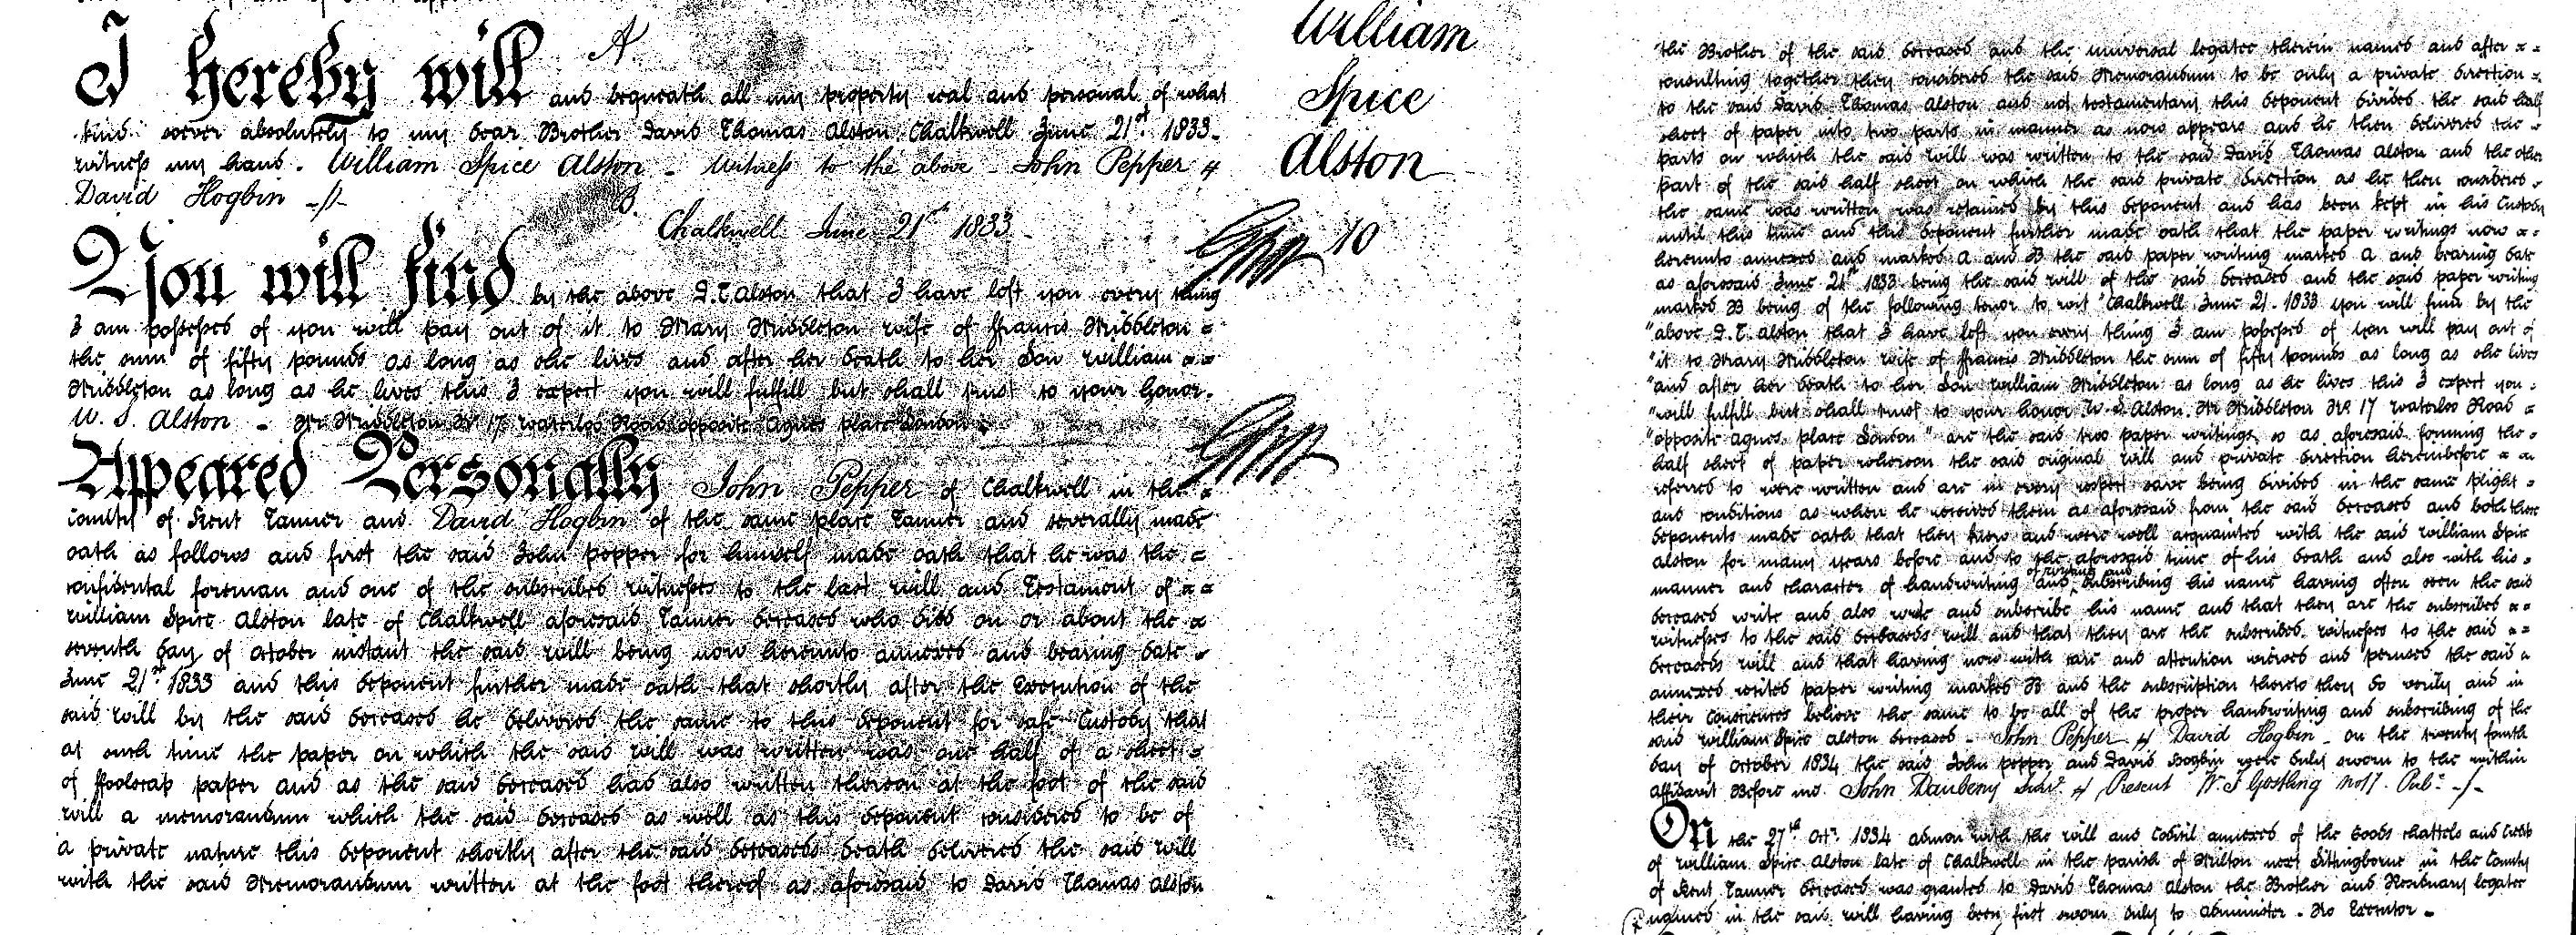 A
I hereby will and bequeath all my property real and personal of what
kind soever absolutely to my dear Brother David Thomas Alston Chalkwell June 21st 1833 -
witness my hand - William Spice Alston - Witness to the above - John Pepper &
David Hogbin -//-
William
Spice
Alston
10
B.
Chalkwell June 21st 1833
You will find by the above D. T. Alston that I have left you every thing
I am possessed of you will pay out of it to Mary Middleton wife of Francis Middleton =
the sum of fifty pounds as long as she lives and after her death to her Son William = =
Middleton as long as he lives this I expect you will fulfill but shall trust to your honor.
W. S. Alston - Mr Middleton No 17 Waterloo Road opposite Agnes place London
Appeared Personally John Pepper of Chalkwell in the =
County of Kent Tanner and David Hogbin of the same place Tanner and severally made
oath as follows and first the said John Pepper for himself made oath that he was the =
confidental foreman and one of the subscribed witnesses to the last will and Testament of = =
William Spice Alston late of Chalkwell aforesaid Tanner deceased who died on or about the =
seventh day of October instant the said will being now hereunto annexed and bearing date -
June 21st 1833 and this deponent further made oath that shortly after the Execution of the
said will by the said deceased he delivered the same to this deponent for safe Custody that
at such time the paper on which the said will was written was one half of a sheet =
of Foolscap paper and as the said deceased had also written thereon at the foot of the said
will a memorandum which the said deceased as well as this deponent considered to be of
a private nature this deponent shortly after the said deceaseds death delivered the said will
with the said Memorandum written at the foot thereof as aforesaid to David Thomas Alston
the Brother of the said deceased and the universal legatee therein named and after = =
consulting together they considered the said Memorandum to be only a private direction =
to the said David Thomas Alston and not testamentary this deponent divided the said half
sheet of paper into two parts in manner as now appears and he then delivered the =
parts on which the said will was written to the said David Thomas Alston and the other
part of the said half sheet on which the said private direction as he then considered -
the same was written was retained by this deponent and has been kept in his Custody
until this time and this deponent further made oath that the paper writings now = =
hereunto annexed and marked A and B the said paper writing marked A and bearing date
as aforesaid June 21st 1833 being the said will of the said deceased and the said paper writing
marked B being of the following tenor to wit "Chalkwell June 21. 1833 you will find by the
"above D. T. Alston that I have left you every thing I am possessed of you will pay out of
"it to Mary Middleton wife of Francis Middleton the sum of fifty pounds as long as she lives
"and after her death to her Son William Middleton as long as he lives this I expect you =
"will fulfill but shall trust to your honor W. S. Alston Mr Middleton No 17 Waterloo Road =
"opposite Agnes place London" are the said two paper writings so as aforesaid forming the =
half sheet of paper whereon the said original will and private direction hereinbefore = =
referred to were written and are in every respect save being divided in the same plight =
and conditions as when he received them as aforesaid from the said deceased and both these
deponents made oath that they knew and were well acquainted with the said William Spice
Alston for many years before and to the aforesaid time of his death and also with his =
manner and character of handwriting of writing and and subscribing his name having often seen the said
deceased write and also write and subscribe his name and that they are the subscribed = =
witnesses to the said deceaseds will and that they are the subscribed witnesses to the said = =
deceaseds will and that having now with care and attention viewed and perused the said =
annexed recited paper writing marked B and the subscription thereto they do verily and in
their Consciences believe the same to be all of the proper handwriting and subscribing of the
said William Spice Alston deceased - John Pepper & David Hogbin - on the twenty fourth
day of October 1834 the said John Pepper and David Hogbin were duly sworn to the within
affidavit Before me John Daubeny Surr. & Present W. J Gostling Noty. Pub: -/-
On the 27th Octr. 1834 admon with the will and Codicil annexed of the Goods chattels and Credits
of William Spice Alston late of Chalkwell in the parish of Milton next Sittingborne in the County
of Kent Tanner deceased was granted to David Thomas Alston the Brother and Residuary legatee
named in the said will having been first sworn duly to administer - No Executor -